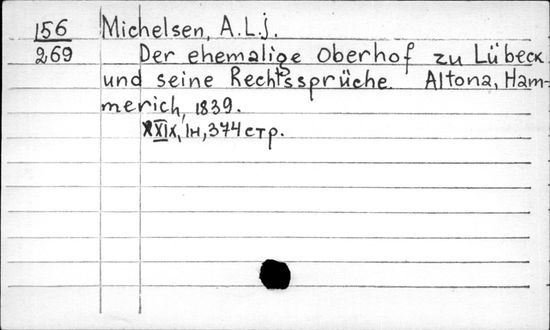 156 Michelsen, A.L.j.
269 Der ehemalige Oberhof zu Lübeck
und seine Rechtssprüche. Altona, Ham-
merich, 1839.
XXIX, 1н, 374 стр.